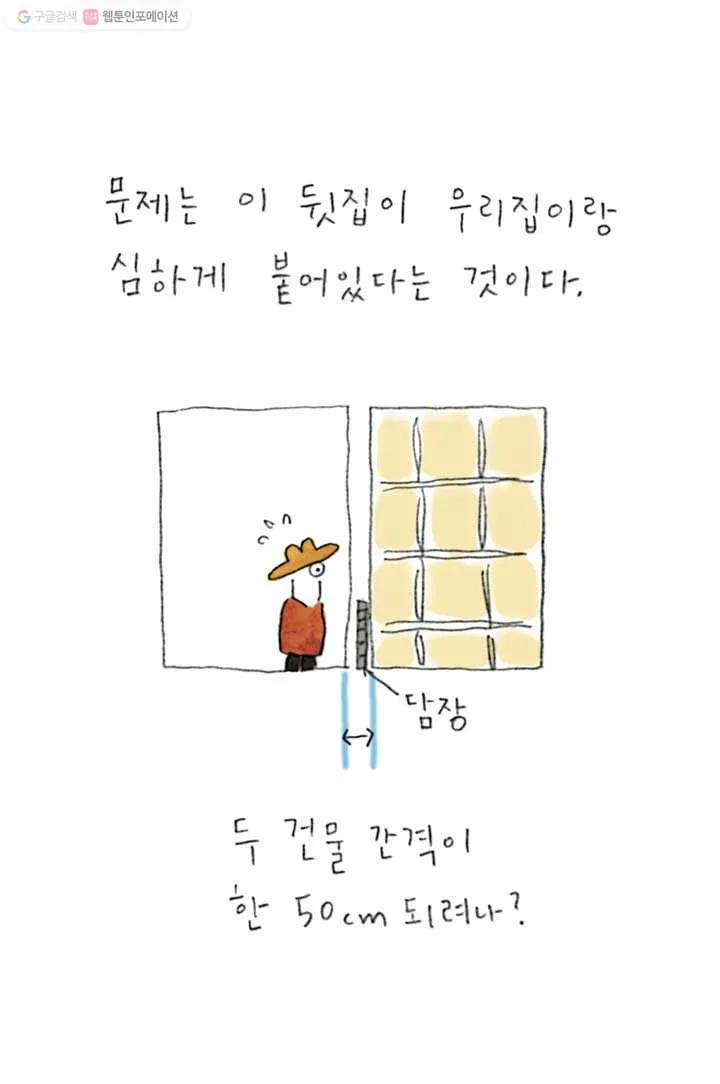 구글검색 웹툰인포메이션
문제는 이 뒷집이 우리집이랑
심하게 붙어있다는 것이다.
담장
두 건물 간격이
한 50cm 되려나?